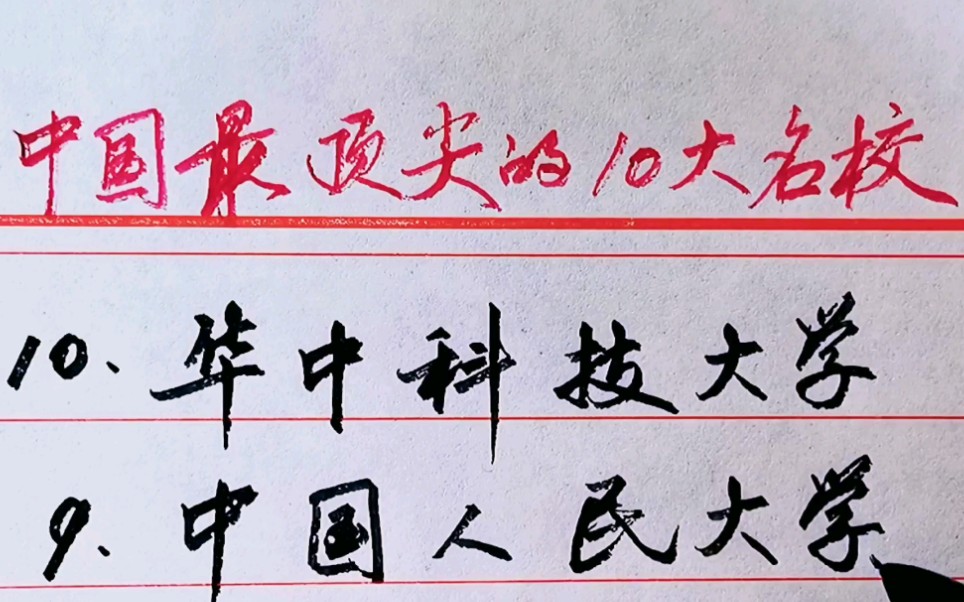 中国最顶尖的10大名校
10、华中科技大学
9、中国人民大学